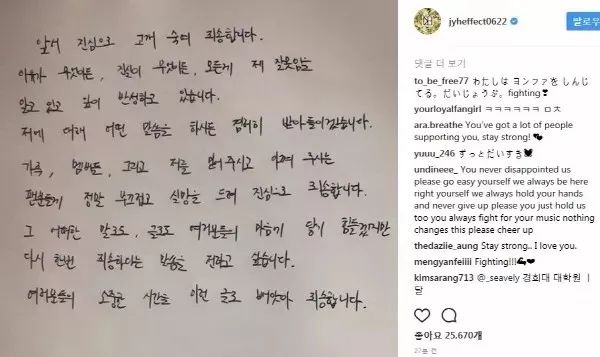 앞서 진심으로 고개 숙여 죄송합니다.
이유가 무엇이든, 진실이 무엇이든, 모든게 제 잘못임을
알고 있고 깊이 반성하고 있습니다.
저에 대해 어떤 말씀을 하시든 겸허히 받아들이겠습니다.
가족, 멤버들, 그리고 저를 믿어주시고 아껴 주시는
팬분들께 정말 부끄럽고 실망을 드려 진심으로 죄송합니다.
그 어떠한 말로도, 글로도 여러분들의 마음이 당시 힘들겠지만
다시 한번 죄송하다는 말씀을 전하고 싶습니다.
여러분들의 소중한 시간을 이런 글로 빼앗아 죄송합니다.
jyheffect0622
팔로우
댓글 더 보기
to_be_free77 わたしは ヨンファを しんじ
てる。だいじょうぶ。fighting❣
yourloyalfangirl ㅋㅋㅋㅋㅋㅋ ㅁㅊ
ara.breathe You've got a lot of people
supporting you, stay strong!
yuuu_246 ずっとだいすき
undineee_ You never disappointed us
please go easy yourself we always be here
right yourself we always hold your hands
and never give up please you just hold us
too you always fight for your music nothing
changes this please cheer up
thedaziie_aung Stay strong.. I love you.
mengyanfeiiii Fighting!!!
kimsarang713 @_seavely 경희대 대학원
달
좋아요 25,670개
27분 전